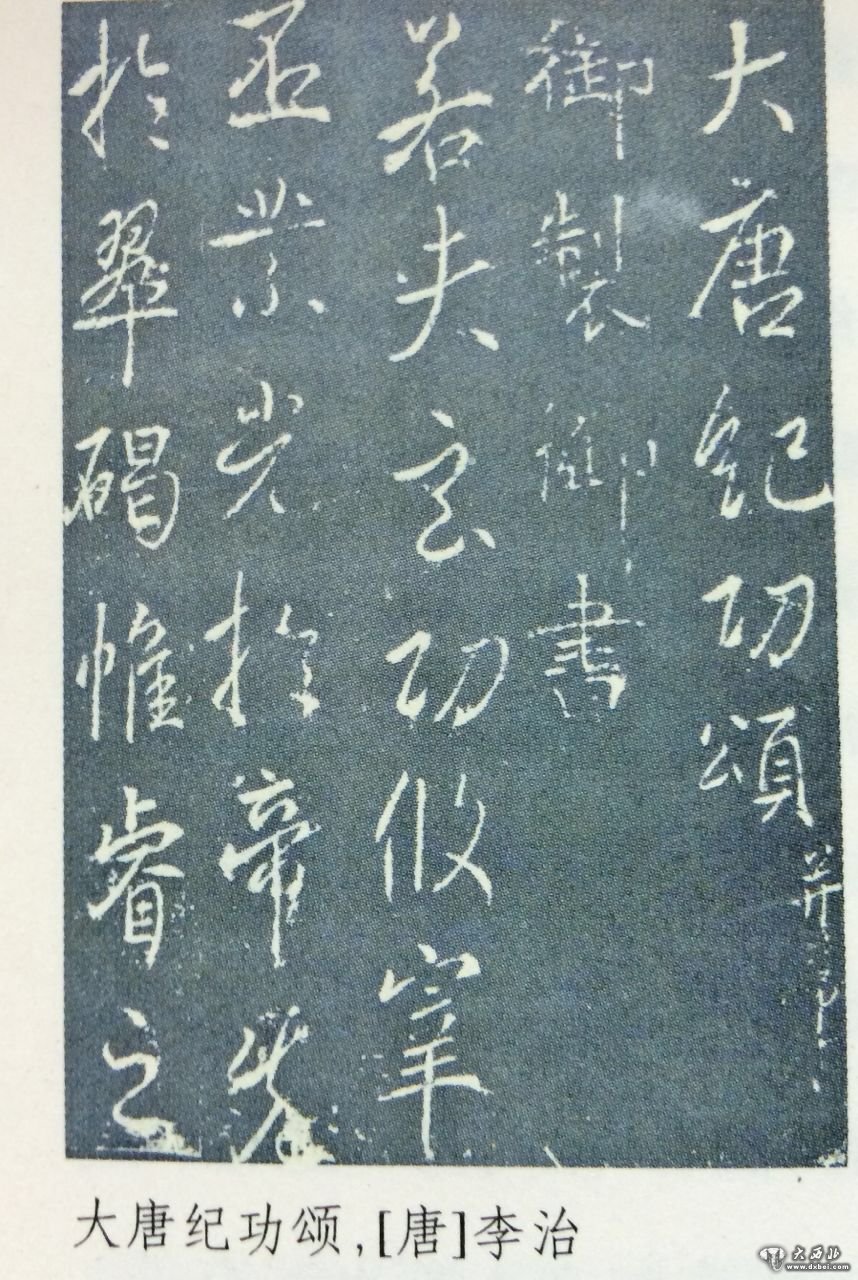 大唐紀功頌并序
御製御書
若夫玄功攸宰
業光於帝先
於翠碣惟睿之
大唐纪功颂,[唐]李治
大西北
www.dxbei.com